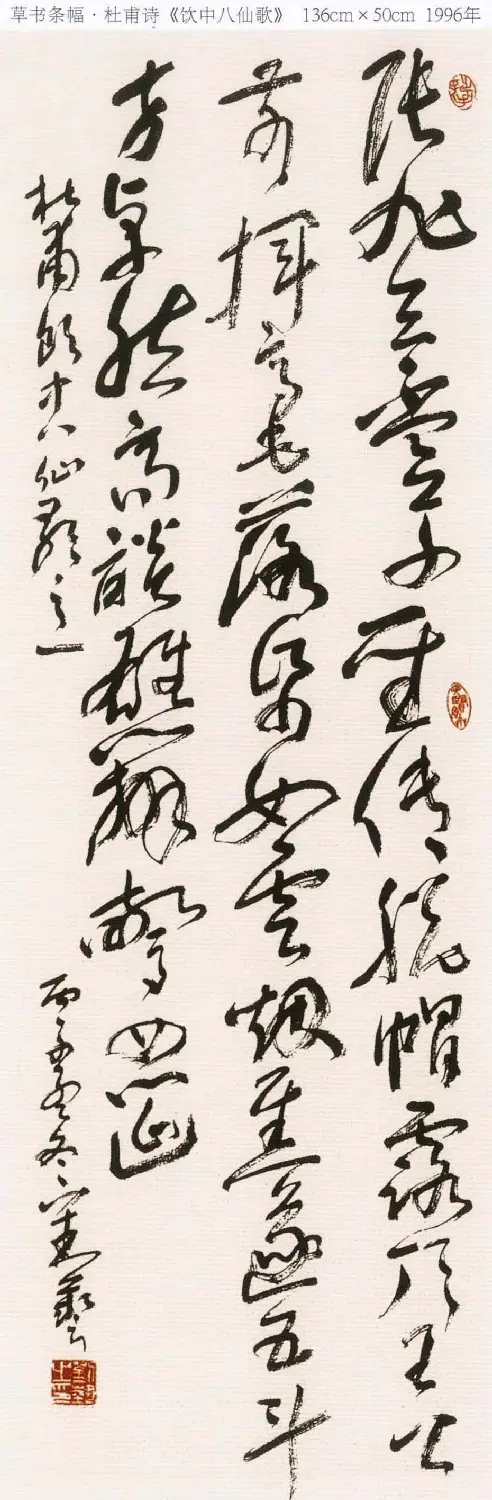 草书条幅·杜甫诗《饮中八仙歌》 136cm×50cm 1996年
張旭三盃草聖傳脱帽露頂王公
前揮毫落紙如雲烟焦遂五斗
方卓然高談雄辯驚四筵
杜甫飲中八仙歌之一
丙子孟冬